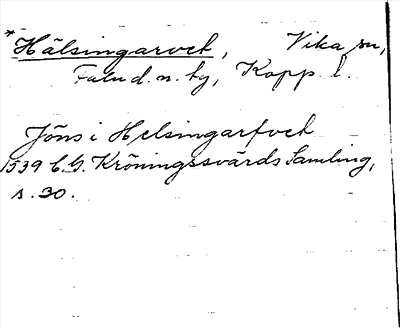 *Hälsingarvet, Vika sn,
Falu d.n. tg, Kopp. l.
Jöns i Helsingarfvet
1539 C. G. Kröningssvärds Samling,
s. 30.